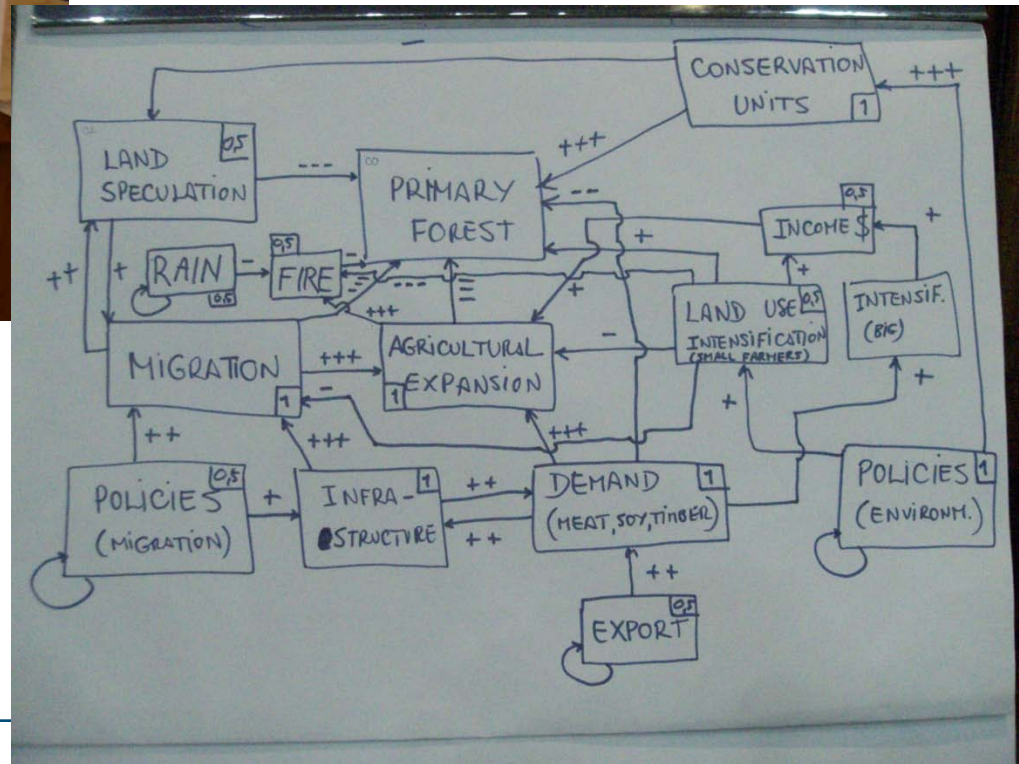 -
CONSERVATION
UNITS
1
+++
LAND
SPECULATION
0,5
---
+++
PRIMARY
FOREST
--
INCOME $
0,5
+
++
+
RAIN
0,5
-
0,5
FIRE
-
-
---
---
+
+
+
LAND USE
INTENSIFICATION
(SMALL FARMERS)
0,5
INTENSIF.
(BIG)
MIGRATION
1
+++
+++
-
AGRICULTURAL
EXPANSION
1
-
+
+
++
+++
+++
POLICIES
(MIGRATION)
0,5
+
INFRA-
STRUCTURE
1
++
++
DEMAND
(MEAT, SOY, TIMBER)
1
POLICIES
(ENVIRONM.)
1
++
EXPORT
0,5